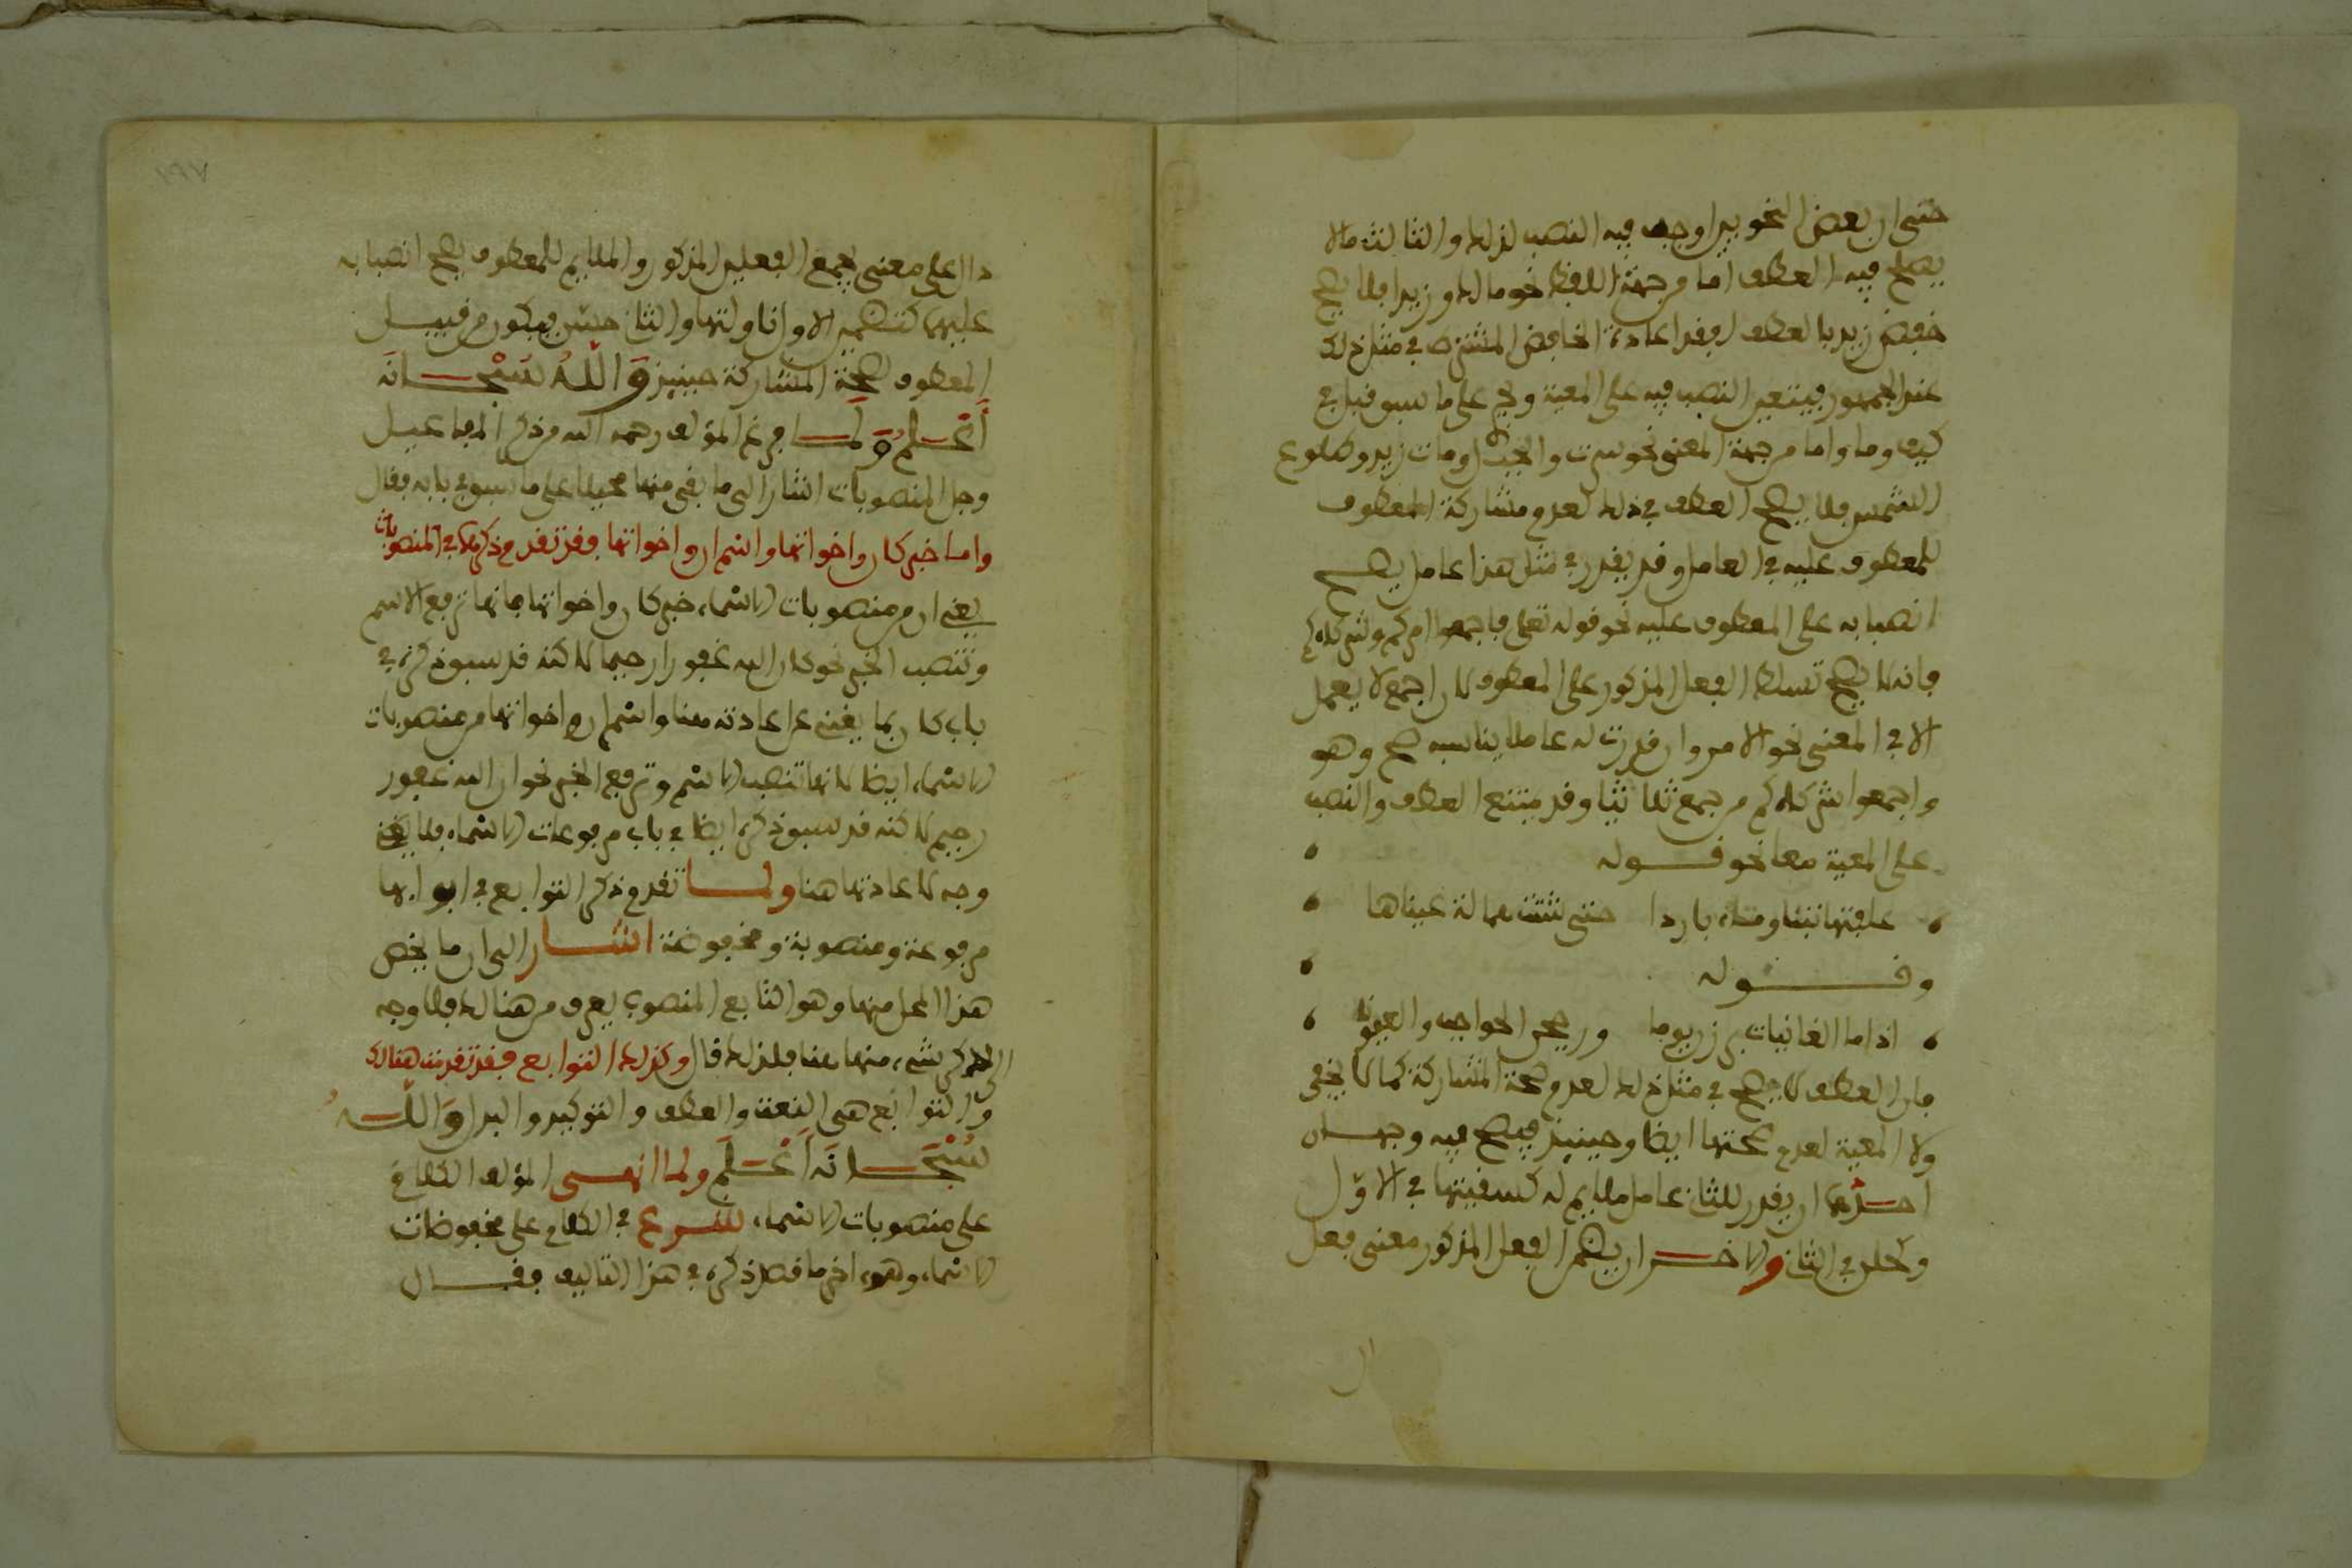 حتى ان بعض النحويين اوجب فيه النصب لذلك والثالث ما لا
يصلح فيه العطف اما من جهة اللفظ نحو مالك وزيدا فلا يصح
خفض زيد بالعطف لفقد اعادة الخافض المشترط في مثل ذلك
عند الجمهور فيتعين النصب فيه على المعية وفي على ما سبق قبل في
كيف وما واما من جهة المعنى نحو سرت والجبل ومات زيد وطلوع
الشمس فلا يصح العطف في ذلك لعدم مشاركة المعطوف
للمعطوف عليه في العامل وقد يقدر في مثل هذا عامل يصح
انصبابه على المعطوف عليه نحو قوله تعلى فاجمعوا امركم وشركاءكم
فانه لا يصح تسلط الفعل المذكور على المعطوف لان اجمع لا يعمل
الا في المعنى نحو الامر وان قدرت له عاملا يناسبه صح وهو
واجمعوا شركاءكم من جمع ثلاثيا وقد يمتنع العطف والنصب
على المعية معا نحو قوله
علفتها تبنا وماء باردا حتى شتت همالة عيناها
وقوله
اذا ما الغانيات برزن يوما وزججن الحواجب والعيونا
فان العطف لا يصح في مثل ذلك لعدم صحة المشاركة كما لا يخفى
ولا المعية لعدم صحتها ايضا وحينيذ فيصح فيه وجهان
احدهما ان يقدر للثاني عامل ملايم له كسقيتها في الاول
وكحلن في الثاني والاخر ان يضمن الفعل المذكور معنى فعل
دال على معنى يجمع الفعلين المذكور والملايم للمعطوف يصح انصبابه
عليهما كتضمين الاول انلتها والثاني حسن فيكون من قبيل
المعطوف لصحة المشاركة حينيذ وَاللَّهُ سُبْحَانَهُ
أَعْلَمُ وَلَما فرغ المؤلف رحمه الله من ذكر المفاعيل
وجل المنصوبات اشار الى ما بقي منها محيلا على ما سبق في بابه فقال
واما خبر كان واخواتها واسم ان واخواتها فقد تقدم ذكرهما في المنصوبات
يعني ان من منصوبات الاسماء خبر كان واخواتها فانها ترفع الاسم
وتنصب الخبر نحو كان الله غفورا رحيما لاكنه قد سبق ذكره في
باب كان بما يغني عن اعادته هنا واسم ان واخواتها من منصوبات
الاسماء ايضا لانها تنصب الاسم وترفع الخبر نحو ان الله غفور
رحيم لاكنه قد سبق ذكره ايضا في باب مرفوعات الاسماء فلا يخفى
وجه لاعادتها هنا ولما تقدم ذكر التوابع في ابوابها
مرفوعة ومنصوبة ومخفوضة اشار الى ان ما يخص
هذا المحل منها وهو التابع المنصوب يعرف من هنالك فلا وجه
لذكر شيء منها هنا فلذلك قال وكذلك التوابع فقد تقدمت هنالك
والتوابع هي النعت والعطف والتوكيد والبدل وَاللَّهُ
سُبْحَانَهُ أَعْلَم ولما انهى المؤلف الكلام
على منصوبات الاسماء شرع في الكلام على مخفوضات
الاسماء وهو اخر ما قصد ذكره في هذا التاليف فقال